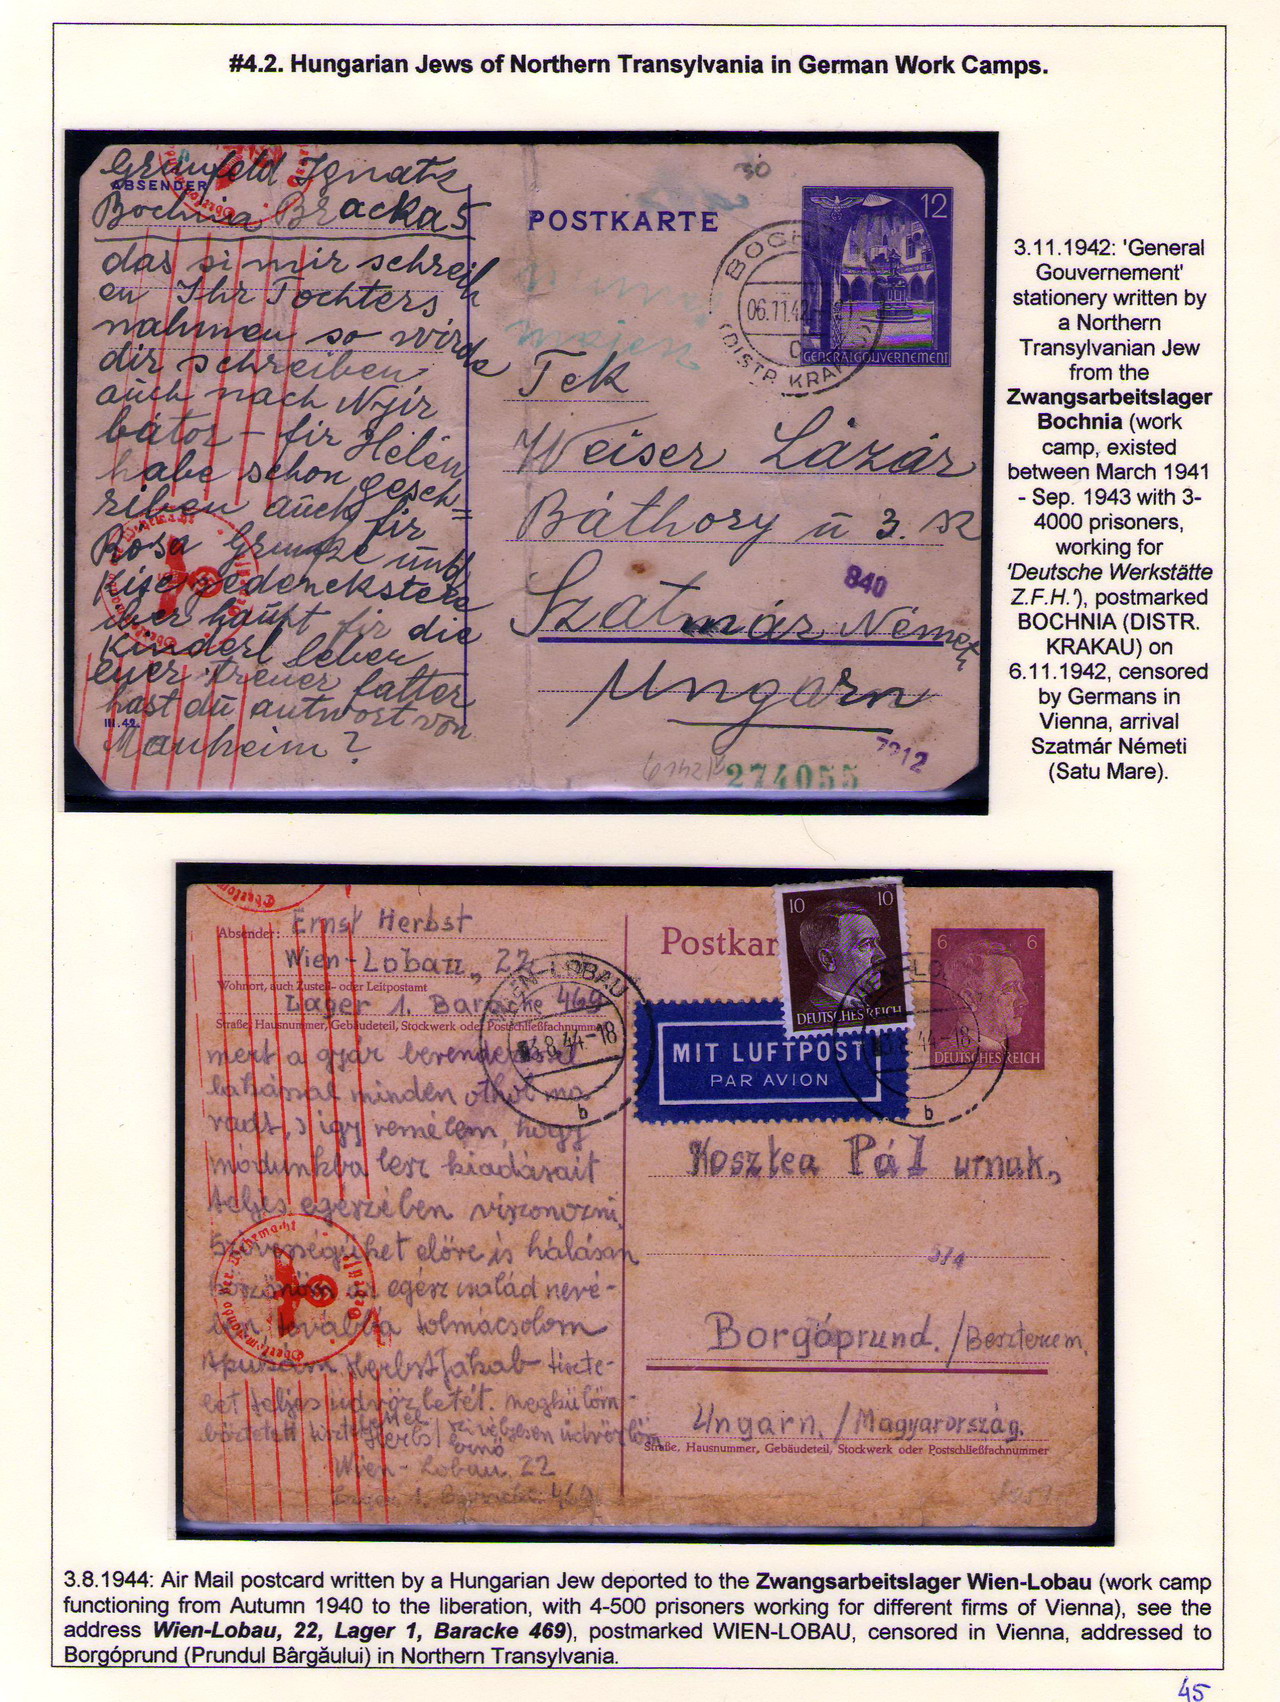 #4.2. Hungarian Jews of Northern Transylvania in German Work Camps.
Grünfeld Ignatz
ABSENDER
Bochnia Bracka 5
das si mir schreib
en Ihr Tochters
nahmen so wirds
dir schreiben
auch nach Nyir
bátor – fir Helén
habe schon gesch=
riben auch fir
Rosa und
iber haupt fir die
Kinderl leben
euer treuer fatter
hast du antwort von
III.42.
Manheim?
POSTKARTE
30
12
GENERALGOUVERNEMENT
BOCHNIA
06.11.42
(DISTR. KRAKAU)
Tek
Weiser Lázár
Báthory u 3. sz
840
Szatmár Németi
Ungarn
7912
274055
3.11.1942: 'General
Gouvernement'
stationery written by
a Northern
Transylvanian Jew
from the
Zwangsarbeitslager
Bochnia (work
camp, existed
between March 1941
- Sep. 1943 with 3-
4000 prisoners,
working for
'Deutsche Werkstätte
Z.F.H.'), postmarked
BOCHNIA (DISTR.
KRAKAU) on
6.11.1942, censored
by Germans in
Vienna, arrival
Szatmár Németi
(Satu Mare).
Absender: Ernst Herbst
Wien-Lobau, 22
Wohnort, auch Zustell- oder Leitpostamt
Lager 1. Baracke 469
Straße, Hausnummer, Gebäudeteil, Stockwerk oder Postschließfachnummer
mert a gyár berendezéssel
lakással minden othol ma-
radt, s igy remélem, hogy
módunkba lesz kiadásait
teljes egészében viszonozni.
Szivességüket előre is hálásan
köszönöm az egész család nevé-
ben, továbbá tolmácsolom
apukám Herbst Jakab tiszte-
let teljes üdvözletét. megkülöm-
böztetett tisztelettel szivélyesen üdvözlöm
Herbst Ernő
Wien-Lobau 22
Lager 1. Baracke 469
Postkar
10 10
DEUTSCHES REICH
6 6
DEUTSCHES REICH
WIEN-LOBAU
3.8.44-18
b
MIT LUFTPOST
PAR AVION
Kosztea Pál urnak,
Borgóprund. /Beszterce m.
Ungarn. /Magyarország.
Straße, Hausnummer, Gebäudeteil, Stockwerk oder Postschließfachnummer
3.8.1944: Air Mail postcard written by a Hungarian Jew deported to the Zwangsarbeitslager Wien-Lobau (work camp
functioning from Autumn 1940 to the liberation, with 4-500 prisoners working for different firms of Vienna), see the
address Wien-Lobau, 22, Lager 1, Baracke 469), postmarked WIEN-LOBAU, censored in Vienna, addressed to
Borgóprund (Prundul Bârgăului) in Northern Transylvania.
45